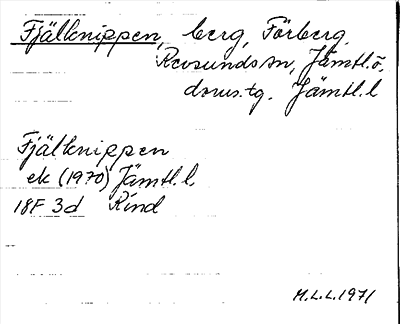 Fjälknippen, berg, Förberg,
Revsunds sn, Jämtl. ö.
doms.tg. Jämtl. l
Fjälknippen
ek (1970) Jämtl. l.
18F 3d Rind
M.L.L. 1971